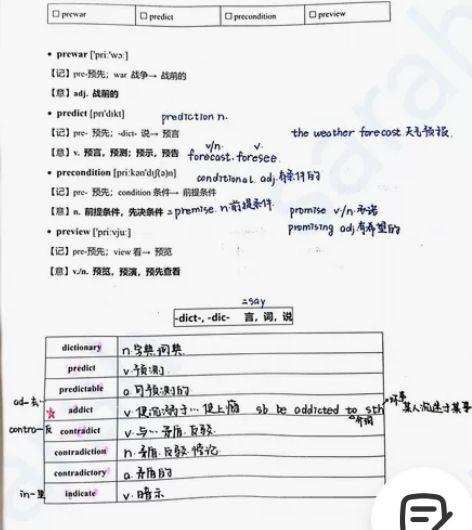 ☐ prewar ☐ predict ☐ precondition ☐ preview
• prewar ['priːˈwɔː]
【记】pre-预先；war 战争→ 战前的
【意】adj. 战前的
• predict [prɪˈdɪkt] prediction n.
【记】pre- 预先；-dict- 说→ 预言 the weather forecast 天气预报.
【意】v. 预言，预测；预示，预告 v/n. forecast. v. foresee.
• precondition [priːkənˈdɪʃ(ə)n] conditional adj.有条件的
【记】pre- 预先；condition 条件→ 前提条件
【意】n. 前提条件，先决条件 = premise. n.前提条件. promise v/n.承诺
• preview ['priːvjuː] promising adj.有希望的
【记】pre-预先；view 看→ 预览
【意】v./n. 预览，预演，预先查看
=say
-dict-, -dic- 言，词，说
dictionary n.字典.词典
predict v.预测.
predictable a.可预测的.
ad-去 addict v.使沉溺于… 使上瘾 sb be addicted to sth 某人沉迷于某事
介词
contra-反 contradict v.与…矛盾.反驳.
contradiction n.矛盾.反驳.悖论.
contradictory a.矛盾的
in-里 indicate v.暗示